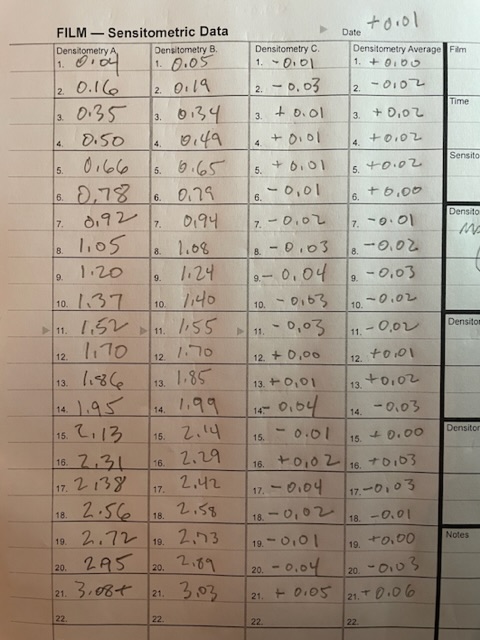 FILM — Sensitometric Data Date +0.01
Densitometry A Densitometry B. Densitometry C. Densitometry Average Film
1. 0.04 1. 0.05 1. -0.01 1. +0.00
2. 0.16 2. 0.19 2. -0.03 2. -0.02
3. 0.35 3. 0.34 3. +0.01 3. +0.02 Time
4. 0.50 4. 0.49 4. +0.01 4. +0.02
5. 0.66 5. 0.65 5. +0.01 5. +0.02 Sensito
6. 0.78 6. 0.79 6. -0.01 6. +0.00
7. 0.92 7. 0.94 7. -0.02 7. -0.01 Densito
8. 1.05 8. 1.08 8. -0.03 8. -0.02
9. 1.20 9. 1.24 9. -0.04 9. -0.03
10. 1.37 10. 1.40 10. -0.03 10. -0.02
11. 1.52 11. 1.55 11. -0.03 11. -0.02 Densitor
12. 1.70 12. 1.70 12. +0.00 12. +0.01
13. 1.86 13. 1.85 13. +0.01 13. +0.02
14. 1.95 14. 1.99 14. -0.04 14. -0.03
15. 2.13 15. 2.14 15. -0.01 15. +0.00 Densitor
16. 2.31 16. 2.29 16. +0.02 16. +0.03
17. 2.38 17. 2.42 17. -0.04 17. -0.03
18. 2.56 18. 2.58 18. -0.02 18. -0.01
19. 2.72 19. 2.73 19. -0.01 19. +0.00 Notes
20. 2.85 20. 2.89 20. -0.04 20. -0.03
21. 3.08+ 21. 3.03 21. +0.05 21. +0.06
22. 22. 22. 22.